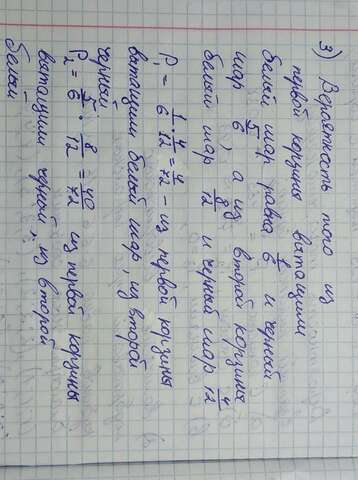 3) Вероятность того из
первой корзина витащим
белый шар равна 1/6 и черный
шар 5/6, а из второй корзина
белый шар 8/12 и черный шар 4/12
P₁ = 1/6 · 4/12 = 4/72 - из первой корзина
вытащим белый шар, из второй
черный
P₂ = 5/6 · 8/12 = 40/72 из первой корзины
вытащим черной, из второй
белый